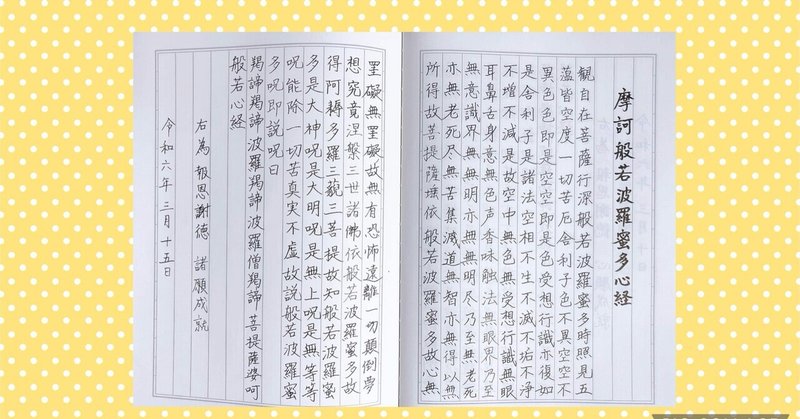 摩訶般若波羅蜜多心経
観自在菩薩行深般若波羅蜜多時照見五
蘊皆空度一切苦厄舎利子色不異空空不
異色色即是空空即是色受想行識亦復如
是舎利子是諸法空相不生不滅不垢不浄
不増不減是故空中無色無受想行識無眼
耳鼻舌身意無色声香味触法無眼界乃至
無意識界無無明亦無無明尽乃至無老死
亦無老死尽無苦集滅道無智亦無得以無
所得故菩提薩埵依般若波羅蜜多故心無
罣礙無罣礙故無有恐怖遠離一切顛倒夢
想究竟涅槃三世諸佛依般若波羅蜜多故
得阿耨多羅三藐三菩提故知般若波羅蜜
多是大神呪是大明呪是無上呪是無等等
呪能除一切苦真実不虚故説般若波羅蜜
多呪即説呪曰
羯諦羯諦 波羅羯諦 波羅僧羯諦 菩提薩婆呵
般若心経
右為報恩謝徳 諸願成就
令和六年三月十五日